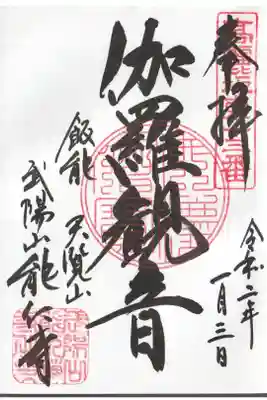 奉拝
令和二年
一月三日
伽羅観音
飯能 天覧山
武陽山能仁寺